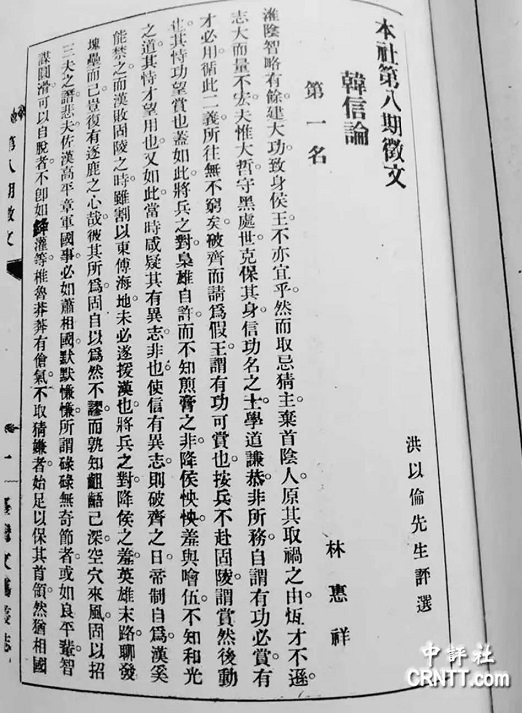 本社第八期徵文
洪以倫先生評選
韓信論
第一名
林惠祥
淮陰智略有餘建大功致身侯王不亦宜乎然而取忌猜主棄首陰人原其取禍之由恆才不遜。
志大而量不宏夫惟大哲守黑處世克保其身信功名之士學道謙恭非所務自謂有功必賞有
才必用循此二義所往無不窮矣破齊而請爲假王謂有功可賞也按兵不赴固陵謂賞然後動
也其恃功望賞也蓋如此將兵之對梟雄自許而不知煎膏之非降侯怏怏羞與噲伍不知和光
之道其恃才望用也又如此當時咸疑其有異志非也使信有異志則破齊之日帝制自爲漢奚
能禁之而漢敗固陵之時雖割以東傅海地未必遂援漢也將兵之對降侯之羞英雄末路聊發
塊壘而已豈復有逐鹿之心哉彼其所爲固自以爲然不謬而孰知齟齬已深空穴來風固以招
三夫之譖悲夫佐漢高平章軍國事必如蕭相國默默慊慊所謂碌碌無奇節者或如良平輩智
謀圓滑可以自脫者不卽如絳灌等椎魯莽莽有傖氣不取猜嫌者始足以保其首領然猶相國
第八期徵文
一
臺灣文藝叢誌
中評社
CRNTT.com